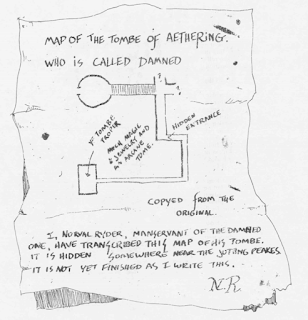 MAP OF THE TOMBE OF AETHERING.
WHO IS CALLED DAMNED
?
?
HIDDEN
ENTRANCE
Yᵉ TOMBE
PROPER
MUCH MAGIC
& JEWELRY AND
AN ARCANE
TOME.
COPYED FROM THE
ORIGINAL.
I, NORVAL RYDER, MANSERVANT OF THE DAMNED
ONE, HAVE TRANSCRIBED THIS MAP OF HIS TOMBE.
IT IS HIDDEN SOMEWHERE NEAR THE JOTUNG PEAKES.
IT IS NOT YET FINISHED AS I WRITE THIS.
N.R.